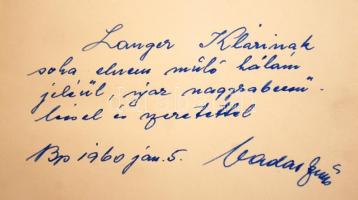 Langer Klárinak
soha el nem múló hálám
jeléül, igaz nagyrabecsü-
léssel és szeretettel
Bp 1960 jan. 5. Vadas Jenő